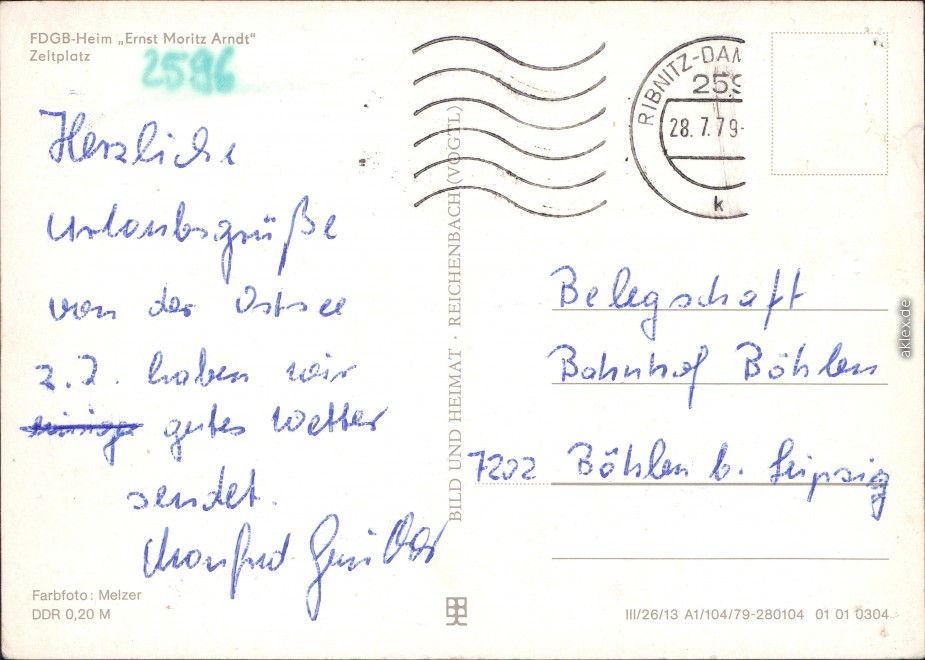 FDGB-Heim „Ernst Moritz Arndt"
Zeltplatz
2596
Herzliche
Urlaubsgrüße
von der Ostsee
z.Z. haben wir
gutes Wetter
sendet.
Manfred
BILD UND HEIMAT · REICHENBACH (VOGTL)
RIBNITZ-DAM
259
28.7.79-
k
Belegschaft
Bahnhof Böhlen
7202 Böhlen b. Leipzig
Farbfoto: Melzer
DDR 0,20 M
III/26/13 A1/104/79-280104 01 01 0304
aklex.de